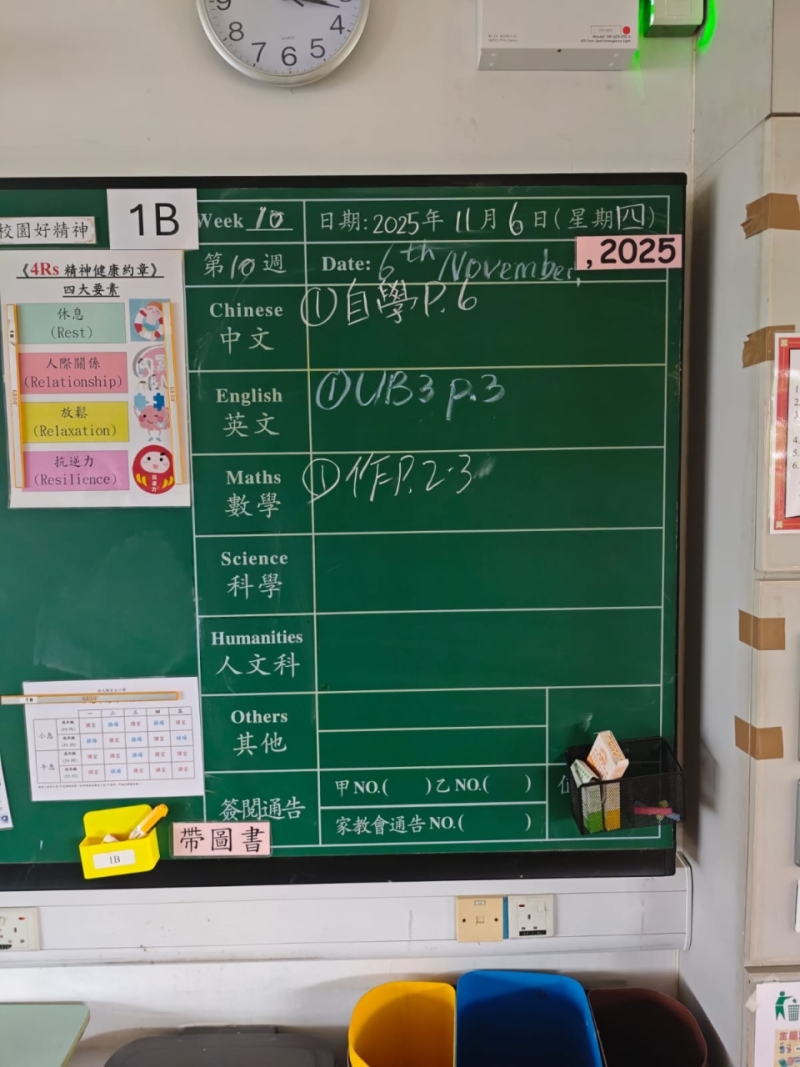 9
8
7
6
5
4
3
校園好精神
1B
Week 10
日期: 2025年 11月 6日(星期四)
第10週
Date: 6th November,
, 2025
《4Rs 精神健康約章》
四大要素
休息
(Rest)
人際關係
(Relationship)
放鬆
(Relaxation)
抗逆力
(Resilience)
Chinese
中文
① 自學P.6
English
英文
① UB3 p.3
Maths
數學
① 作P.2-3
Science
科學
Humanities
人文科
Others
其他
簽閱通告
甲NO.( )乙NO.( )
家教會通告NO.( )
一 二 三 四 五
小息
午息
1B
帶圖書